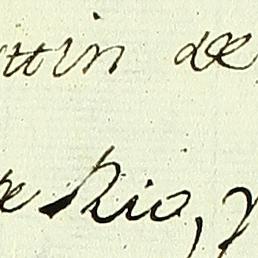 ttin de
e Rio, y